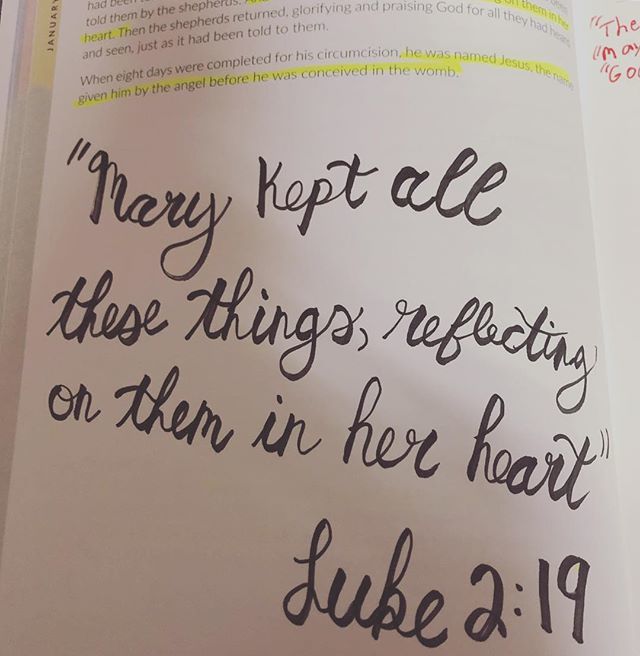 JANUARY
had been to
told them by the shepherds. on them in her
heart. Then the shepherds returned, glorifying and praising God for all they had heard
and seen, just as it had been told to them.
When eight days were completed for his circumcision, he was named Jesus, the name
given him by the angel before he was conceived in the womb.
"Mary kept all
these things, reflecting
on them in her heart"
Luke 2:19
"The
"may
"God